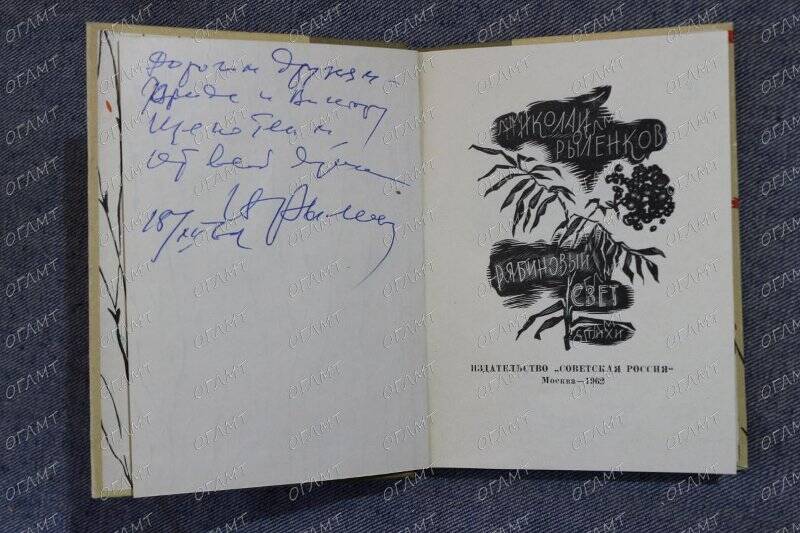 Дорогим друзьям –
и Виктору
от всей души.
Н Рыленков
НИКОЛАЙ
РЫЛЕНКОВ
РЯБИНОВЫЙ
СВЕТ
СТИХИ
ИЗДАТЕЛЬСТВО „СОВЕТСКАЯ РОССИЯ“
Москва—1962
ОГАМТ